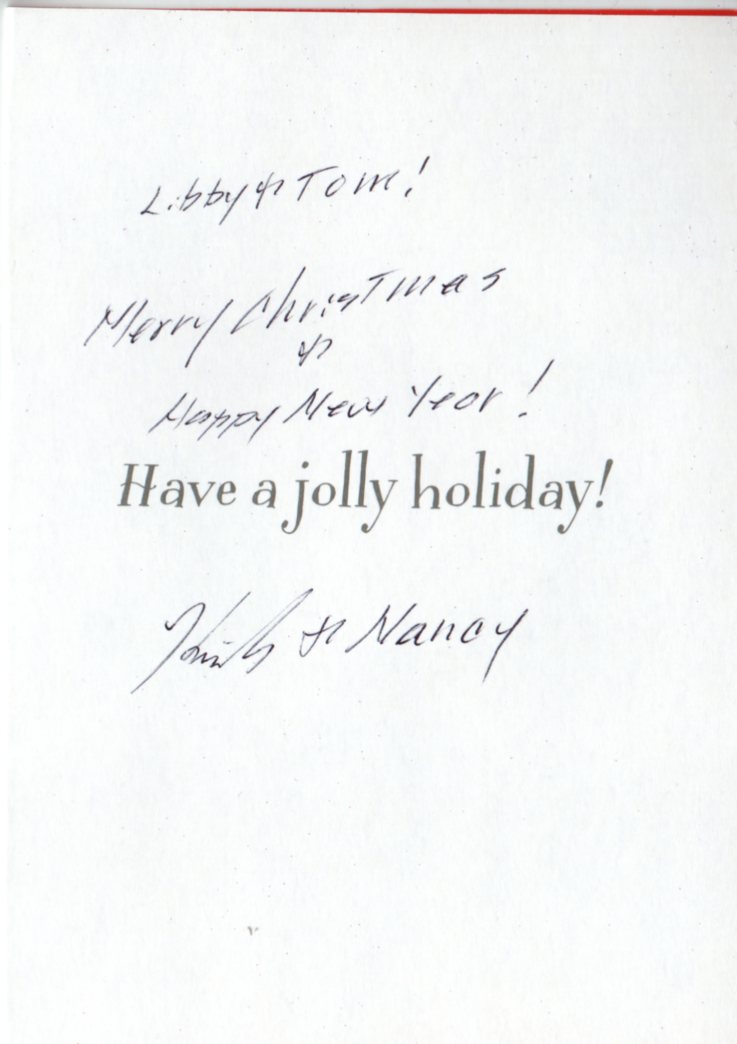 Libby & Tom!
Merry Christmas
&
Happy New Year!
Have a jolly holiday!
& Nancy